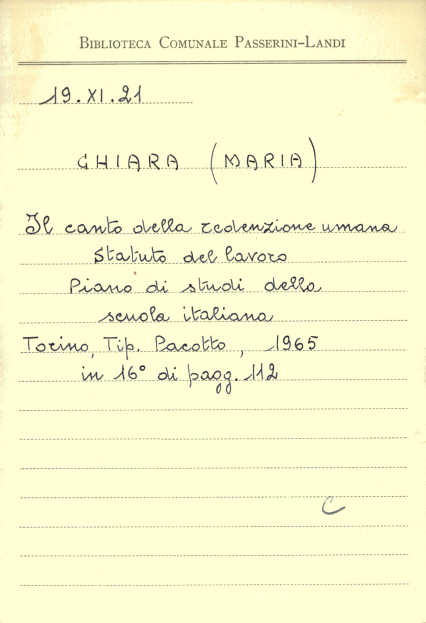 BIBLIOTECA COMUNALE PASSERINI-LANDI
19.XI.21
GHIARA (MARIA)
Il canto della redenzione umana
Statuto del lavoro
Piano di studi della
scuola italiana
Torino, Tip. Pacotto, 1965
in 16° di pagg. 112
C